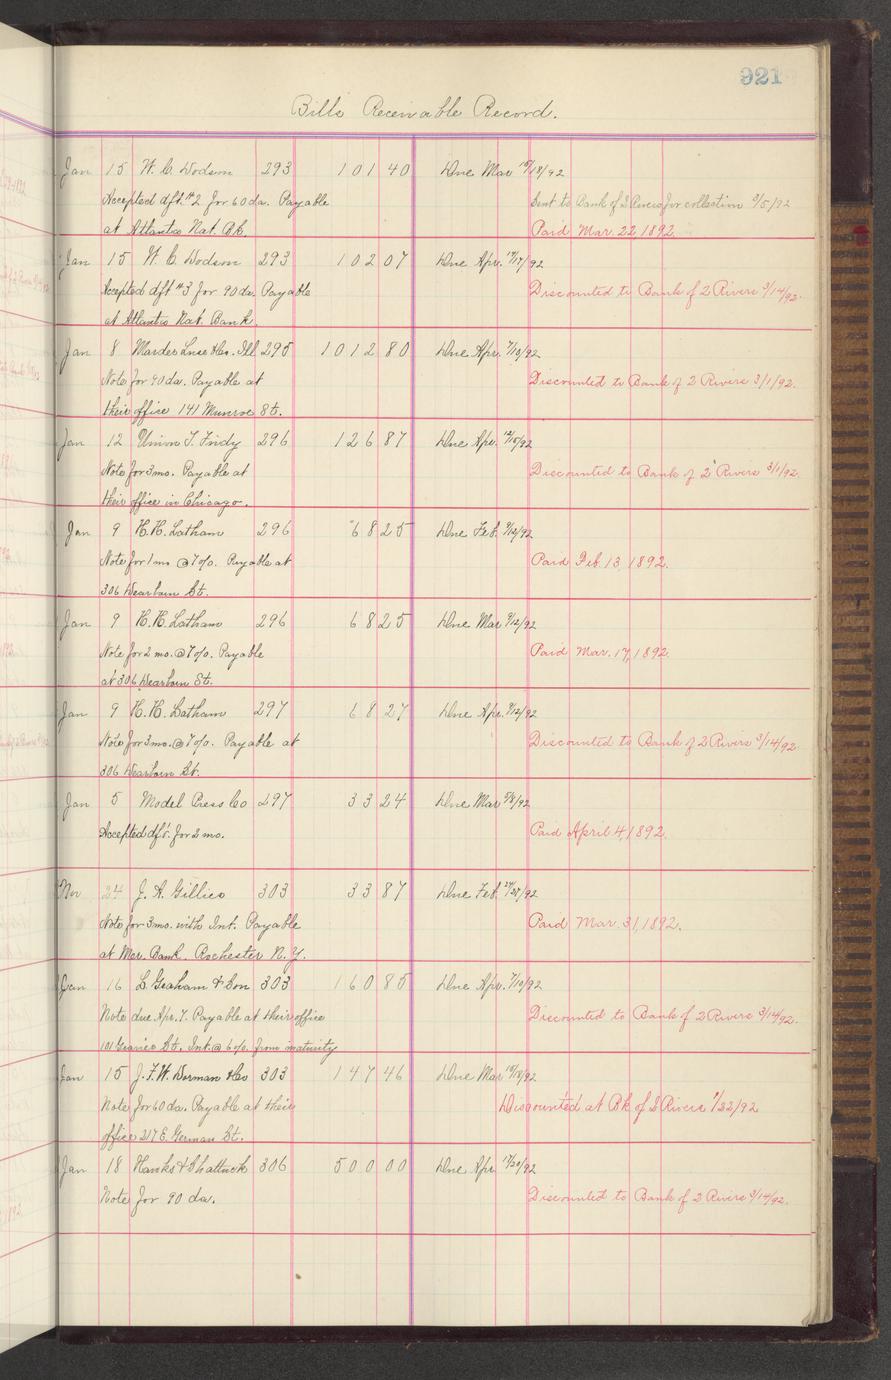 921
Bills Receivable Record.
Jan 15 W. C. Dodson 293 101 40 Due Mar 15/18/92
Accepted dft. #2 for 60 da. Payable Sent to Bank of 2 Rivers for collection 3/5/92
at Atlantic Nat. Bk. Paid Mar. 22 1892.
Jan 15 W. C. Dodson 293 102 07 Due Apr. 14/17/92
Accepted dft #3 for 90 da. Payable Discounted to Bank of 2 Rivers 3/14/92.
at Atlantic Nat. Bank.
Jan 8 Luse & Co. Ill 295 1012 80 Due Apr. 7/10/92
Note for 90 da. Payable at Discounted to Bank of 2 Rivers 3/1/92.
their office 141 Munroe St.
Jan 12 Union T. Fndy 296 126 87 Due Apr. 12/15/92
Note for 3 mo. Payable at Discounted to Bank of 2 Rivers 3/1/92.
their office in Chicago.
Jan 9 H. H. Latham 296 68 25 Due Feb. 9/12/92
Note for 1 mo @ 7 o/o. Payable at Paid Feb. 13, 1892.
306 Dearborn St.
Jan 9 H. H. Latham 296 68 25 Due Mar 9/12/92
Note for 2 mo. @ 7 o/o. Payable Paid Mar. 17, 1892.
at 306 Dearborn St.
Jan 9 H. H. Latham 297 68 27 Due Apr. 9/12/92
Note for 3 mo. @ 7 o/o. Payable at Discounted to Bank of 2 Rivers 3/14/92
306 Dearborn St.
Jan 5 Model Press Co 297 33 24 Due Mar 5/8/92
Accepted dft. for 2 mo. Paid April 4, 1892.
Nov 24 J. A. Gillies 303 33 87 Due Feb.
Note for 3 mo. with Int. Payable Paid Mar. 31, 1892.
at Mer. Bank. Rochester N. Y.
Jan 16 L. Graham & Son 303 160 85 Due Apr. 7/10/92
Note due Apr. 7. Payable at their office Discounted to Bank of 2 Rivers 3/14/92.
101 St. Int. @ 6 o/o. from maturity
Jan 15 J. F. W. Dorman & Co 303 147 46 Due Mar 15/18/92
Note for 60 da. Payable at their Discounted at Bk. of 2 Rivers 1/22/92
office 217 E. German St.
Jan 18 Hanks & Shattuck 306 500 00 Due Apr 17/20/92
Note for 90 da. Discounted to Bank of 2 Rivers 3/14/92.